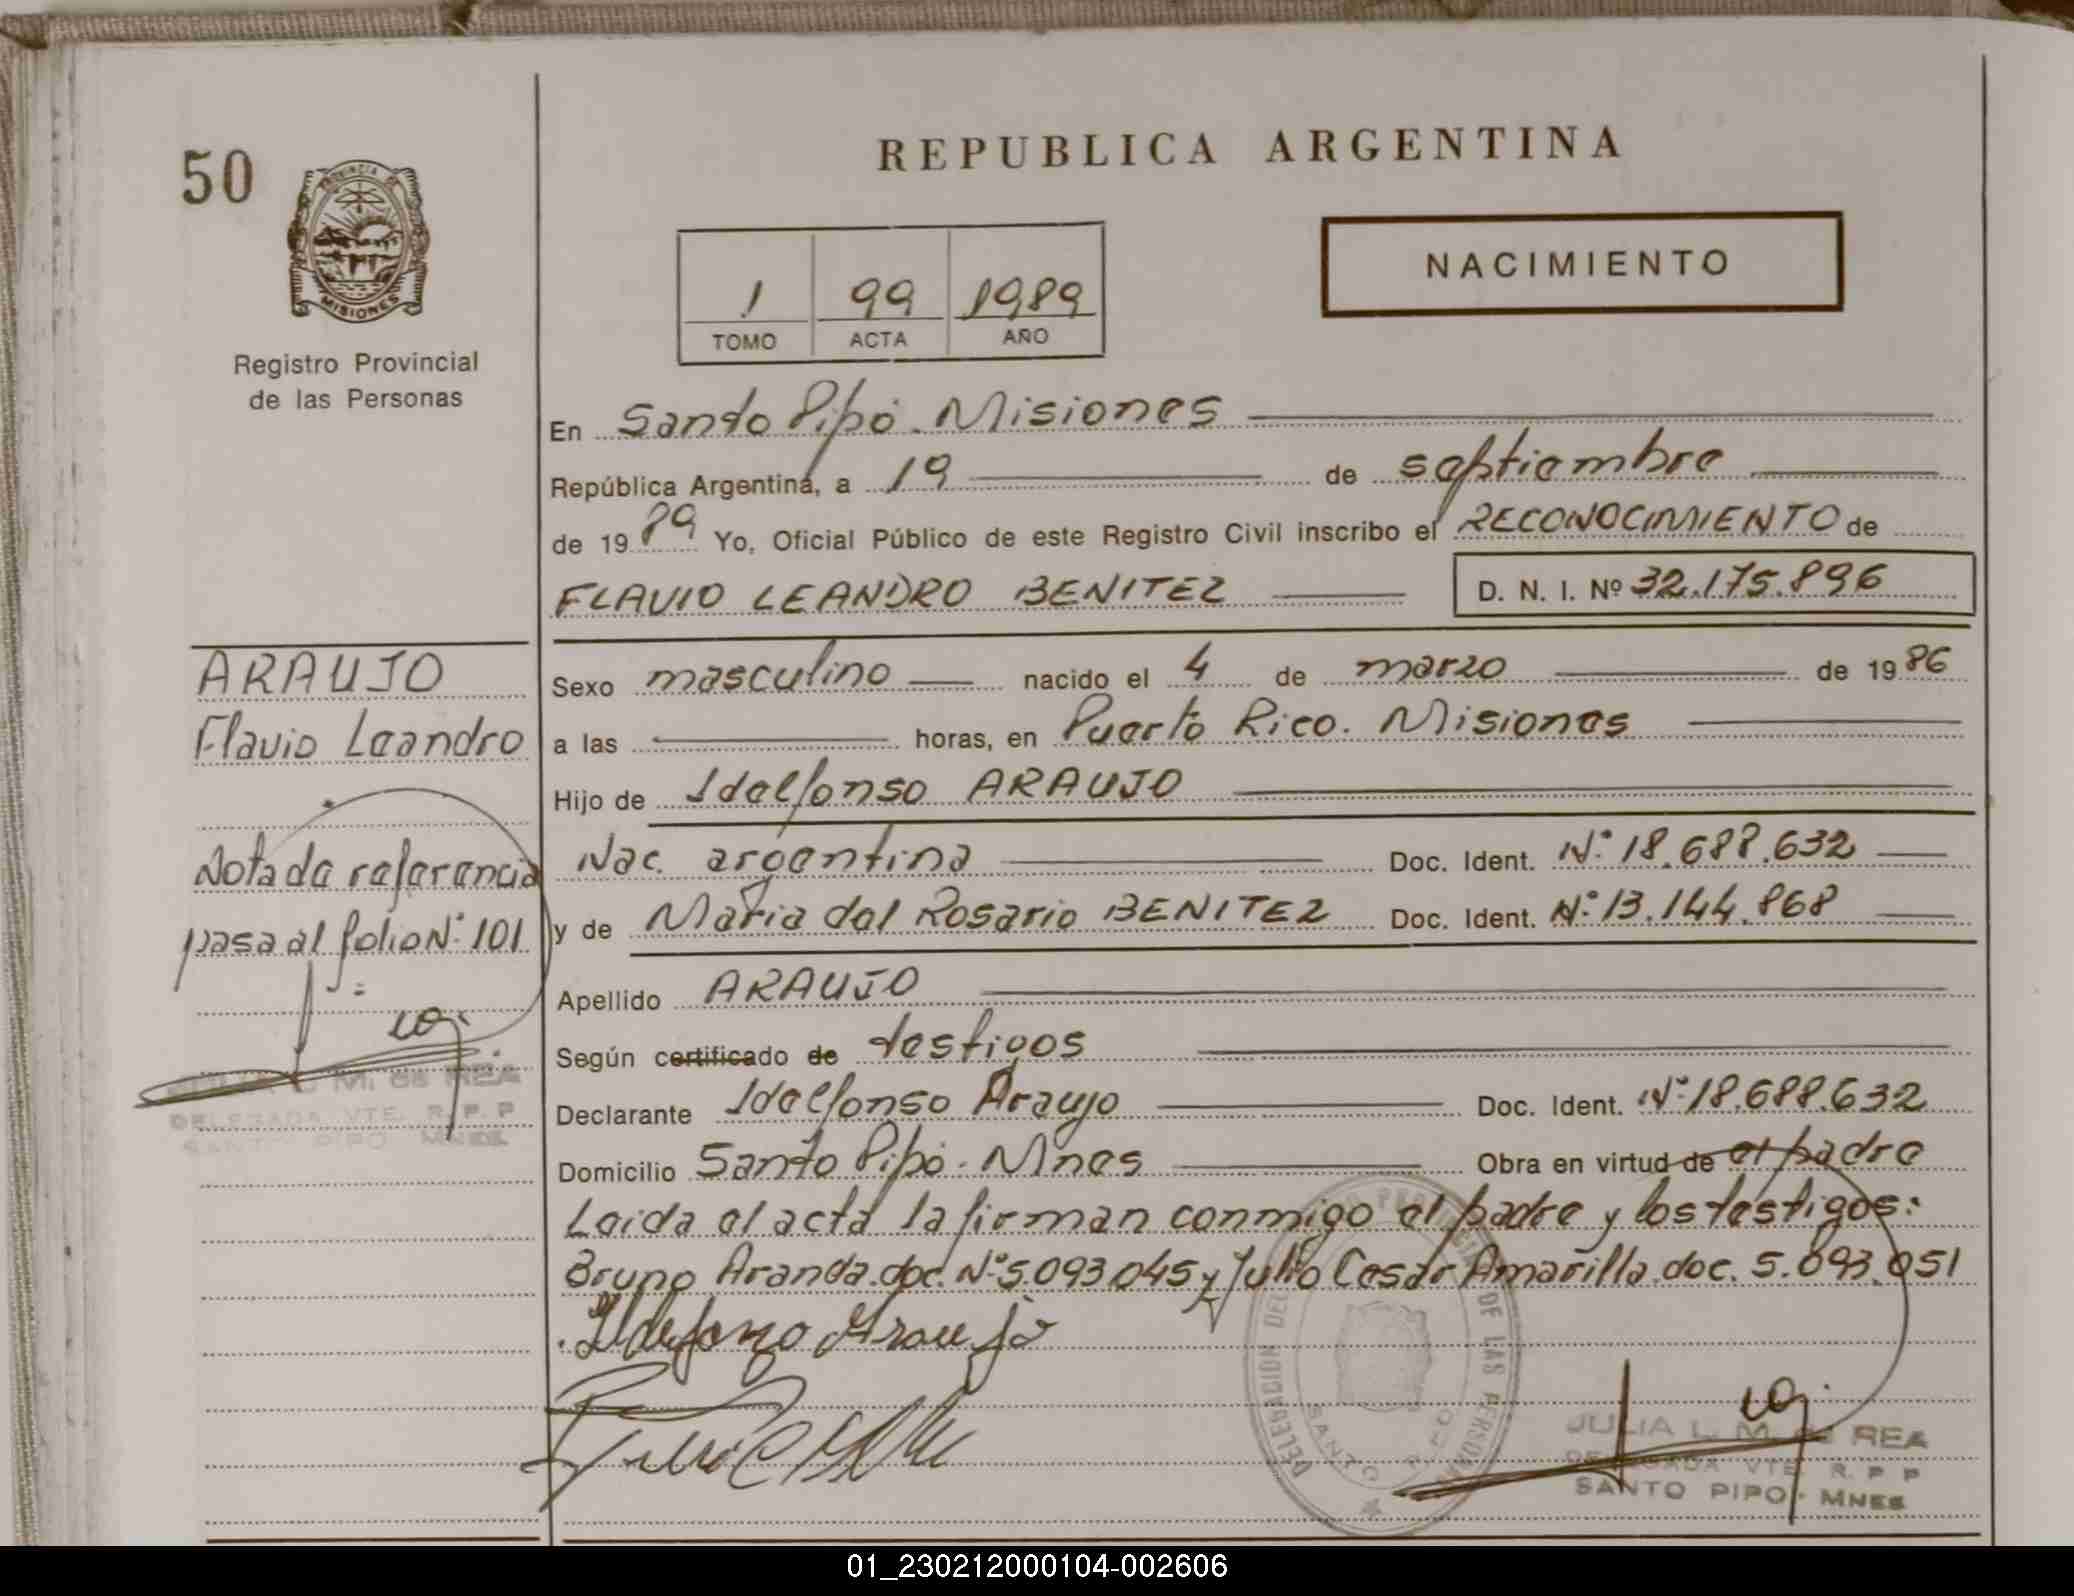 50
REPUBLICA ARGENTINA
PROVINCIA DE
MISIONES
Registro Provincial
de las Personas
1 99 1989
TOMO ACTA AÑO
NACIMIENTO
En Santo Pipó. Misiones
República Argentina, a 19 de septiembre
de 1989 Yo, Oficial Público de este Registro Civil inscribo el RECONOCIMIENTO de
FLAVIO LEANDRO BENITEZ D. N. I. Nº 32.175.896
ARAUJO
Flavio Leandro
Nota de referencia
pasa al folio Nº 101
M. de REA
DELEGADA VTE. R. P. P
SANTO PIPO MNES
Sexo masculino nacido el 4 de marzo de 1986
a las horas, en Puerto Rico. Misiones
Hijo de Idelfonso ARAUJO
Nac. argentina Doc. Ident. Nº 18.688.632
y de Maria del Rosario BENITEZ Doc. Ident. Nº 13.144.868
Apellido ARAUJO
Según certificado de testigos
Declarante Idelfonso Araujo Doc. Ident. Nº 18.688.632
Domicilio Santo Pipó. Mnes Obra en virtud de el padre
Leida el acta la firman conmigo el padre y los testigos:
Bruno Aranda.doc. Nº 5.093.045 y Julio Cesar Amarilla.doc. 5.093.051
Ildefonzo Araujo
DELEGACION DEL PROVINCIAL DE LAS PERSONAS
SANTO PIPO
JULIA L. M. de REA
DELEGADA VTE. R. P. P
SANTO PIPO - MNES
01_230212000104-002606